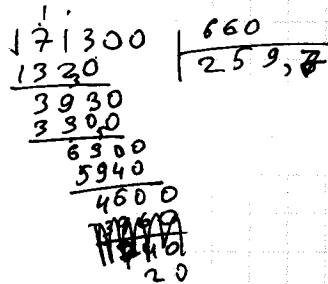 171300 660
1320 259,
3930
3300
6300
5940
4600
20